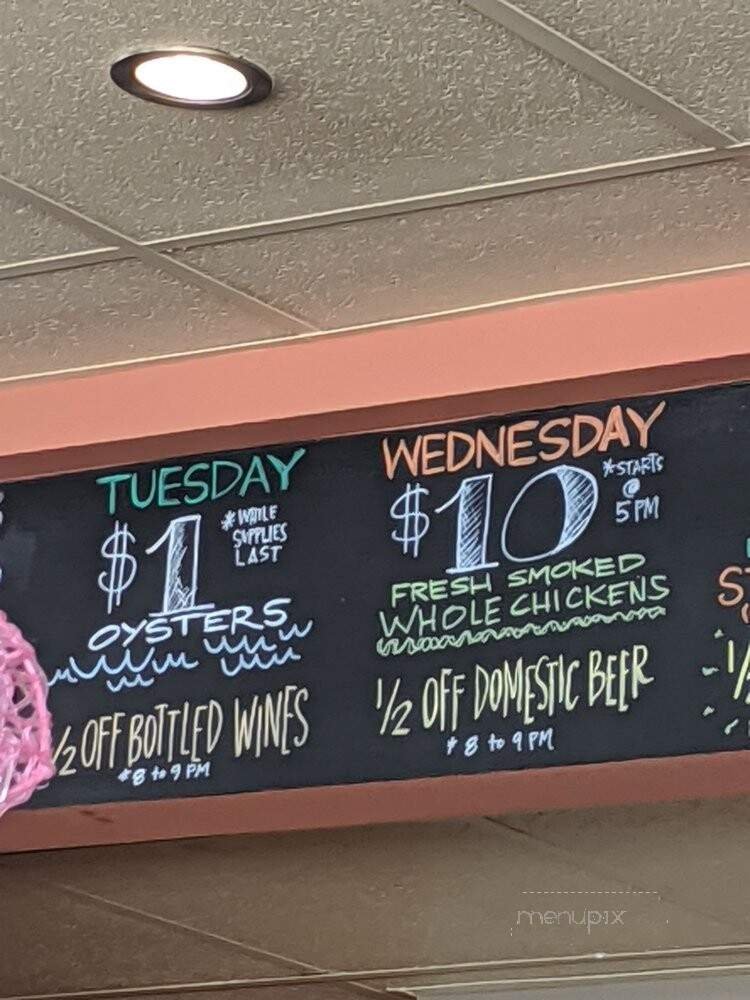 TUESDAY
$1
*WHILE
SUPPLIES
LAST
OYSTERS
1/2 OFF BOTTLED WINES
*8 to 9 PM
WEDNESDAY
$10
*STARTS
@
5 PM
FRESH SMOKED
WHOLE CHICKENS
1/2 OFF DOMESTIC BEER
*8 to 9 PM
ST
menupix